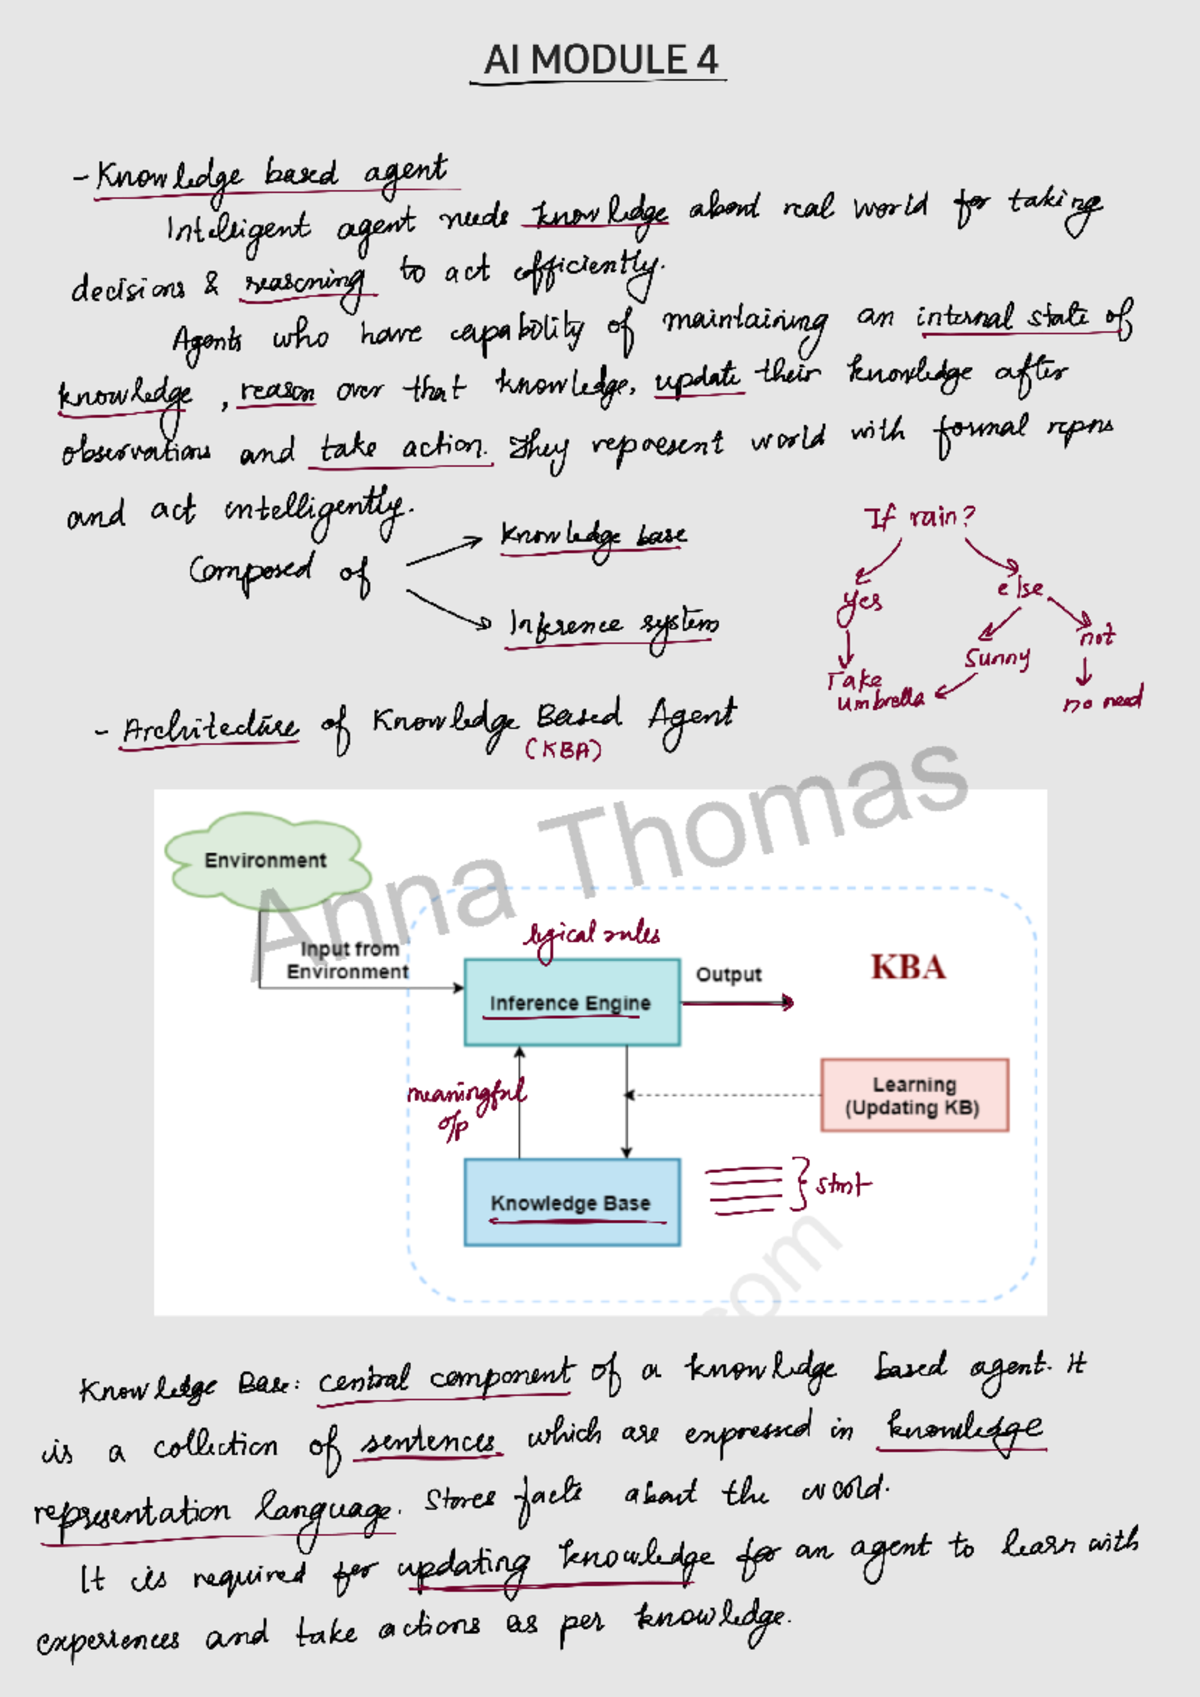 AI MODULE 4
- Knowledge based agent
Intelligent agent needs knowledge about real world for taking
decisions & reasoning to act efficiently.
Agents who have capability of maintaining an internal state of
knowledge, reason over that knowledge, update their knowledge after
observations and take action. They represent world with formal reprns
and act intelligently.
Composed of
Knowledge base
Inference system
If rain?
yes
else
Take
umbrella
Sunny
not
no need
- Architecture of Knowledge Based Agent
(KBA)
Anna Thomas
Environment
Input from
Environment
logical rules
Inference Engine
Output
KBA
meaningful
o/p
Learning
(Updating KB)
Knowledge Base
stmt
com
Knowledge Base: central component of a knowledge based agent. it
is a collection of sentences which are expressed in knowledge
representation language. Stores facts about the world.
It is required for updating knowledge for an agent to learn with
experiences and take actions as per knowledge.